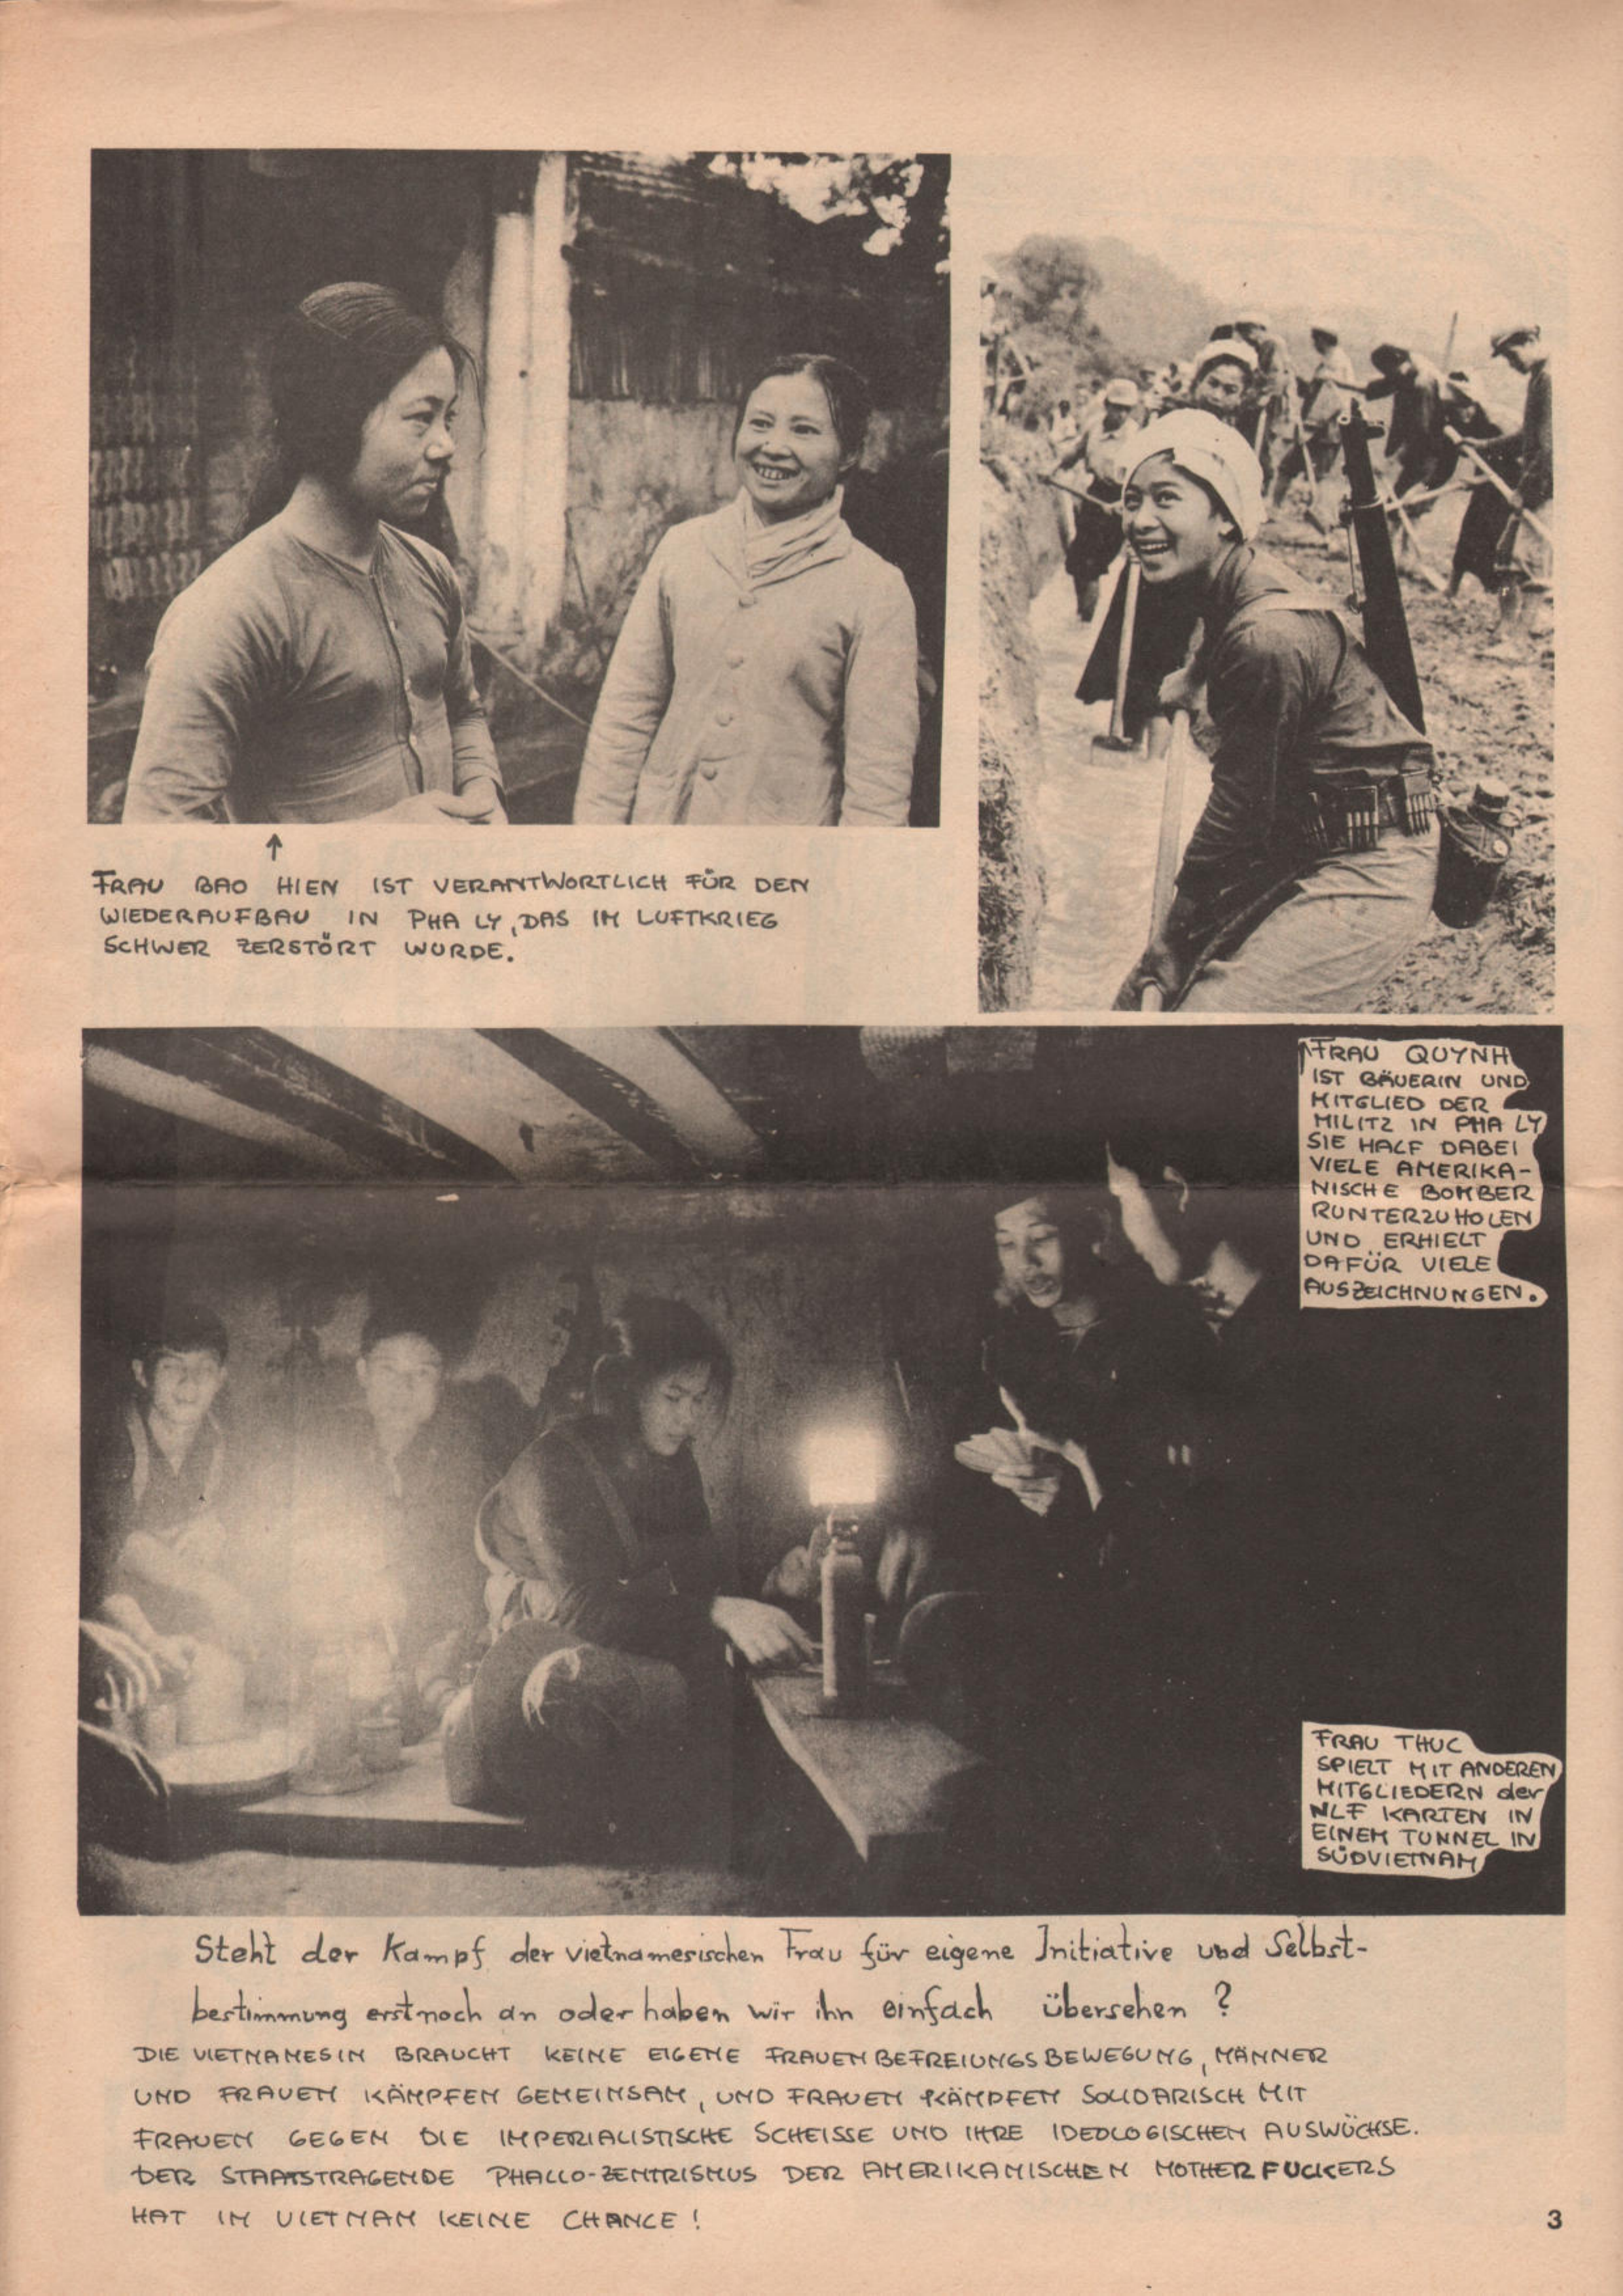 FRAU BAO HIEN IST VERANTWORTLICH FÜR DEN
WIEDERAUFBAU IN PHA LY, DAS IM LUFTKRIEG
SCHWER ZERSTÖRT WURDE.
FRAU QUYNH
IST BÄUERIN UND
MITGLIED DER
MILITZ IN PHA LY
SIE HALF DABEI
VIELE AMERIKA-
NISCHE BOMBER
RUNTERZUHOLEN
UND ERHIELT
DAFÜR VIELE
AUSZEICHNUNGEN.
FRAU THUC
SPIELT MIT ANDEREN
MITGLIEDERN der
NLF KARTEN IN
EINEM TUNNEL IN
SÜDVIETNAM
Steht der Kampf der vietnamesischen Frau für eigene Initiative und Selbst-
bestimmung erst noch an oder haben wir ihn einfach übersehen ?
DIE VIETNAMESIN BRAUCHT KEINE EIGENE FRAUENBEFREIUNGSBEWEGUNG, MÄNNER
UND FRAUEN KÄMPFEN GEMEINSAM, UND FRAUEN KÄMPFEN SOLIDARISCH MIT
FRAUEN GEGEN DIE IMPERIALISTISCHE SCHEISSE UND IHRE IDEOLOGISCHEN AUSWÜCHSE.
DER STAATSTRAGENDE PHALLO-ZENTRISMUS DER AMERIKANISCHEN MOTHERFUCKERS
HAT IN VIETNAM KEINE CHANCE !
3